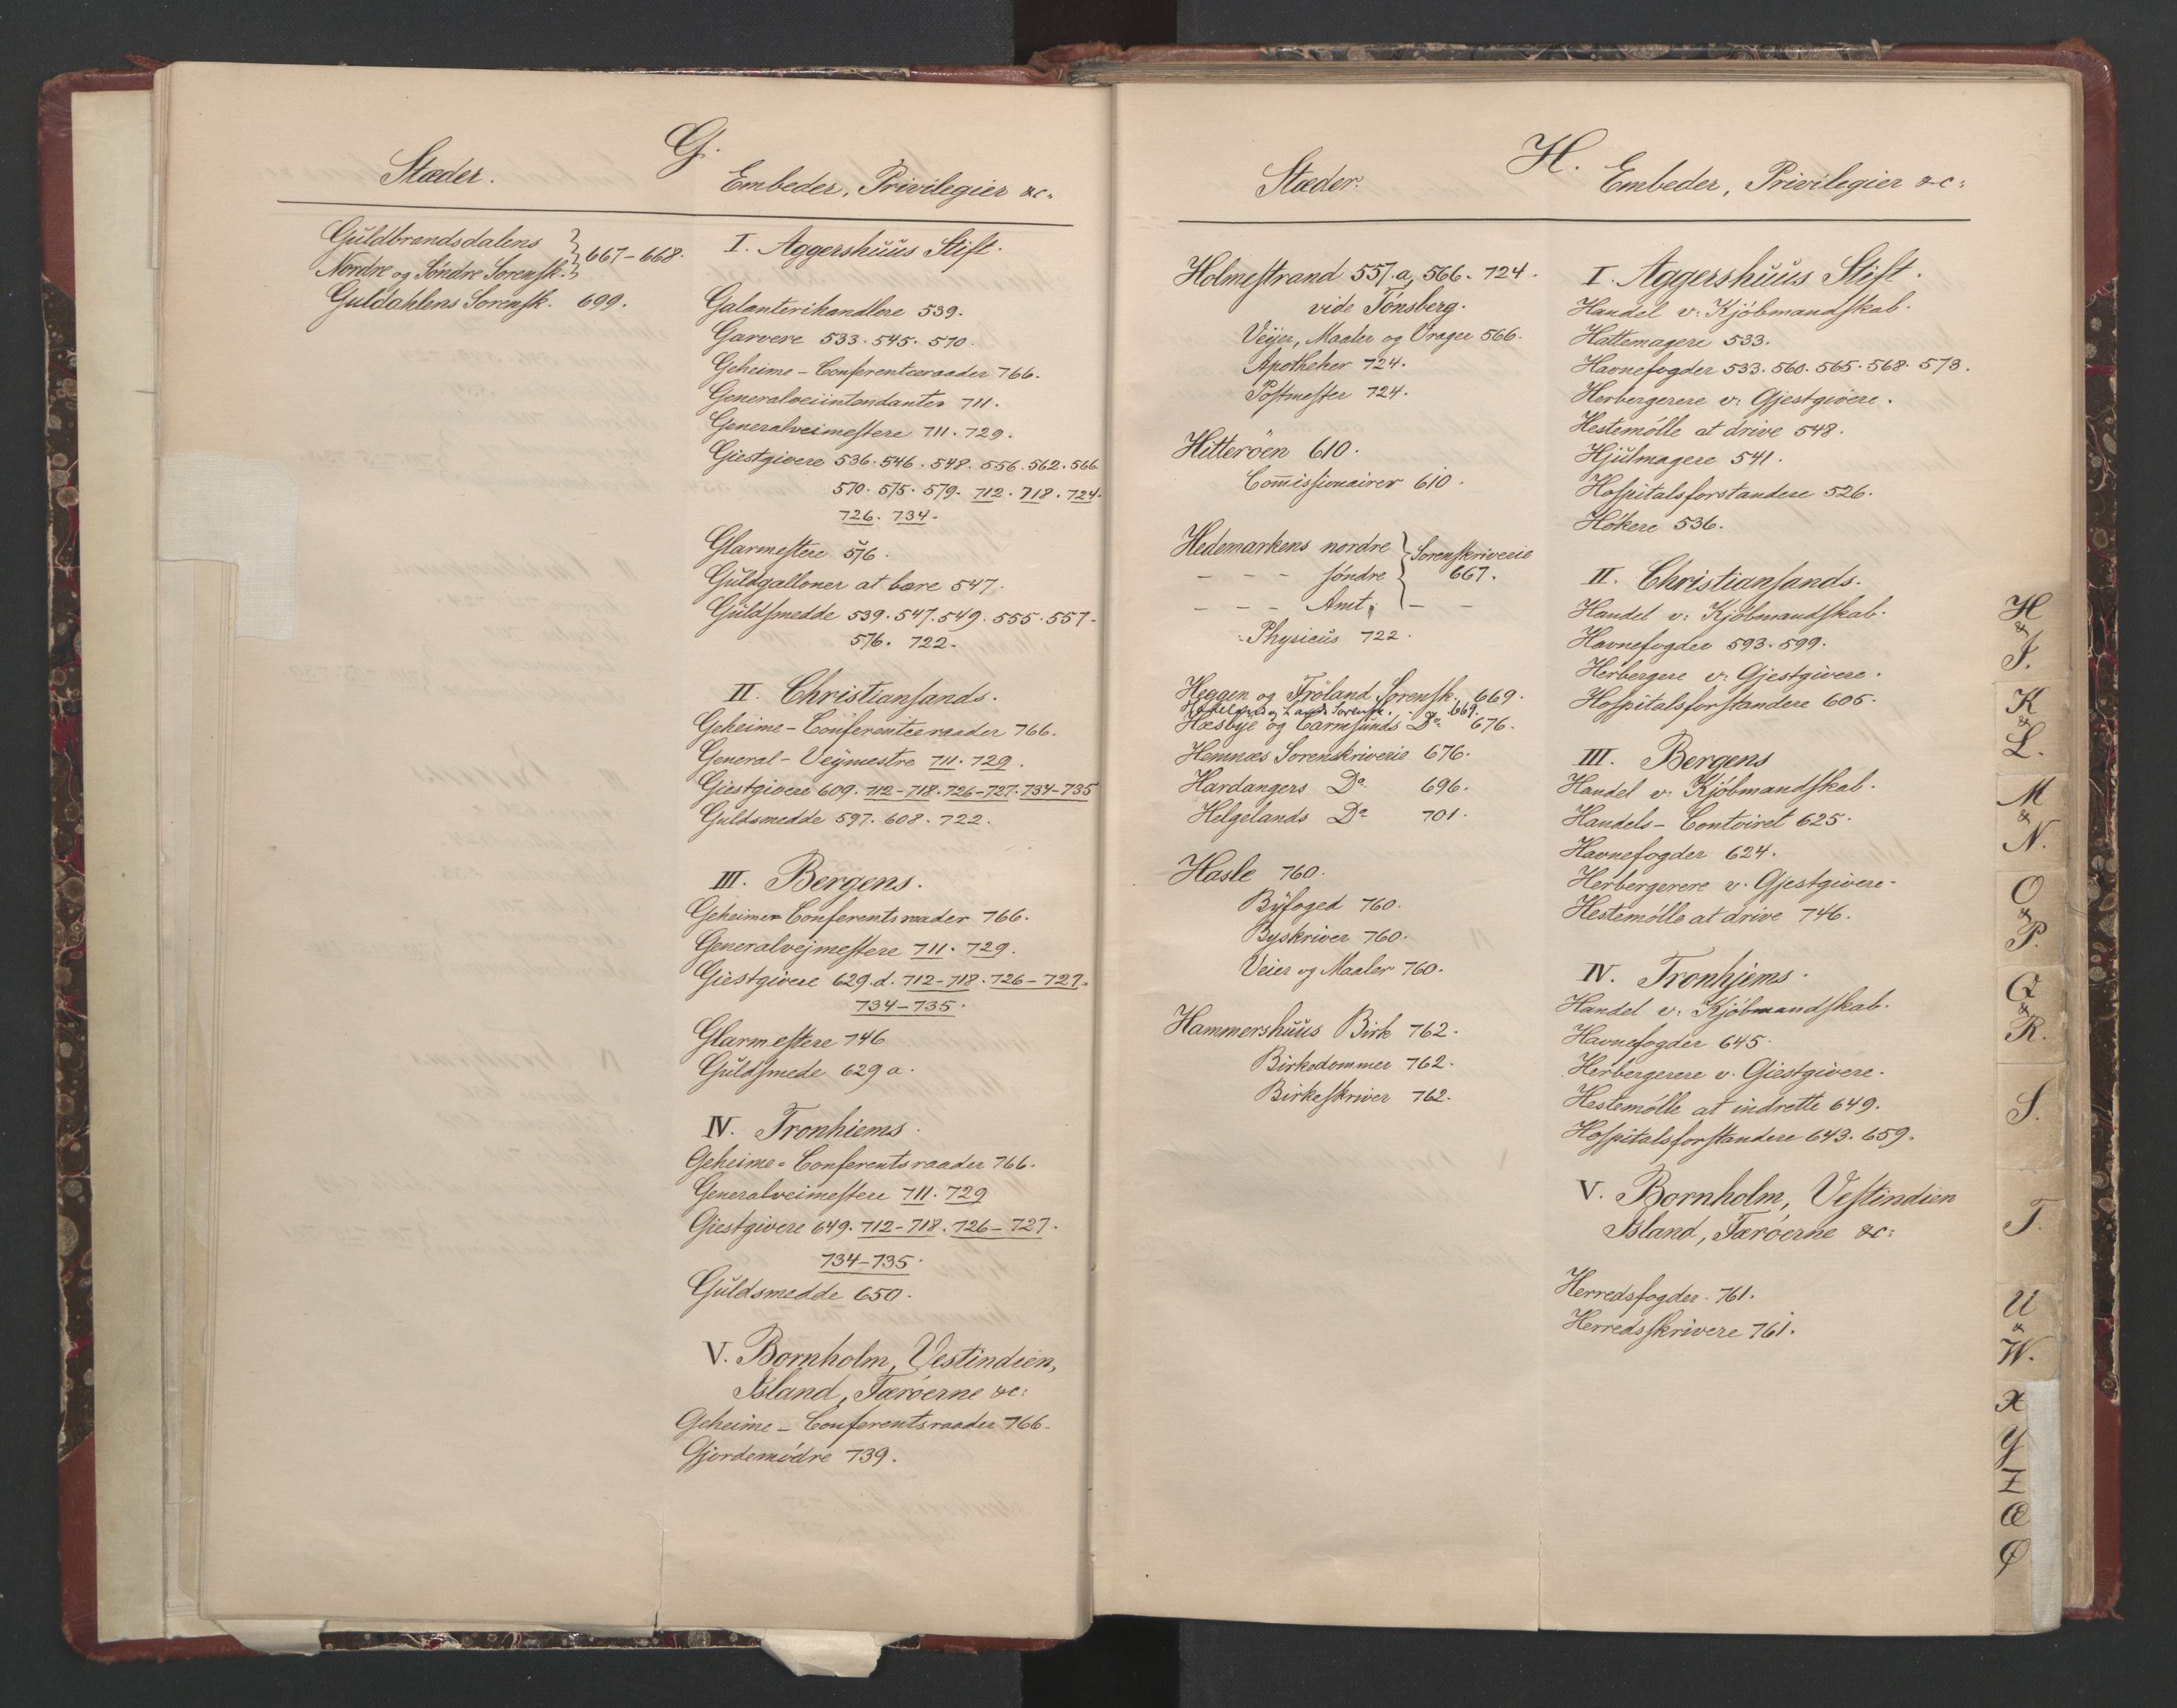 G.
Stæder.
Embeder, Privilegier &c:
Guldbrandsdalens
Nordre og Söndre Sorensk. } 667-668.
Guldahlens Sorensk. 699.
I. Aggershuus Stift.
Galanterihandlere 539.
Garvere 533. 545. 570.
Geheime-Conferenceraader 766.
Generalveiintendanter 711.
Generalveimestere 711. 729.
Giestgivere 536. 546. 548. 556. 562. 566
570. 575. 579. 712. 718. 724.
726. 734.
Glarmestere 576.
Guldgalloner at bære 547.
Guldsmedde 539. 547. 549. 555. 557.
576. 722.
II. Christiansands.
Geheime-Conferenceraader 766.
General-Veymestre 711. 729.
Giestgivere 609. 712-718. 726-727. 734-735
Guldsmedde 597. 608. 722.
III. Bergens.
Geheime-Conferentsraader 766.
Generalvejmestere 711. 729.
Giestgivere 629.d. 712-718. 726-727.
734-735.
Glarmestere 746
Guldsmede 629 a.
IV. Tronhiems.
Geheime-Conferentsraader 766.
Generalveimestere 711. 729
Giestgivere 649. 712-718. 726-727.
734-735.
Guldsmedde 650.
V. Bornholm, Vestindien,
Island, Færöerne &c:
Geheime-Conferentsraader 766-
Gjordemödre 739.
H.
Stæder.
Embeder, Privilegier &c:
Holmestrand 557.a, 566. 724.
vide Tönsberg.
Veijer, Maaler og Vrager 566.
Apotheker 724.
Postmester 724.
Hitteröen 610.
Commissionairer 610.
Hedemarkens nordre } Sorenskriverie
- - - söndre } 667.
- - - Amt, - -
Physicus 722.
Heggen og Fröland Sorensk. 669.
Hadeland og Lands Sorensk. 669.
Hæsbye og Carmsunds Do 676.
Hemnæs Sorenskriverie 676.
Hardangers Do 696.
Helgelands Do 701.
Hasle 760.
Byfoged 760.
Byskriver 760.
Veier og Maaler 760.
Hammershuus Birk 762.
Birkedommer 762.
Birkeskriver 762.
I. Aggershuus Stift.
Handel v: Kjöbmandskab.
Hattemagere 533.
Havnefogder 533. 560. 565. 568. 573.
Herbergerere v: Gjestgivere.
Hestemölle at drive 548.
Hjulmagere 541.
Hospitalsforstandere 526.
Hökere 536.
II. Christiansands.
Handel v: Kjöbmandskab.
Havnefogder 593. 599.
Herbergere v: Gjestgivere.
Hospitalsforstandere 605.
III. Bergens
Handel v: Kjöbmandskab.
Handels-Contoiret 625.
Havnefogder 624.
Herbergerere v. Gjestgivere.
Hestemölle at drive 746.
IV. Tronhjems.
Handel v: Kjöbmandskab.
Havnefogder 645.
Herbergerere v. Giestgivere.
Hestemölle at indrette 649.
Hospitalsforstandere 643. 659.
V. Bornholm, Vestindien
Island, Færöerne &c:
Herredsfogder. 761.
Herredsskrivere 761.
H
&
J.
K
&
L.
M
&
N.
O
&
P.
Q
&
R.
S.
T.
U
&
W.
X
Y
Z
Æ
Ø